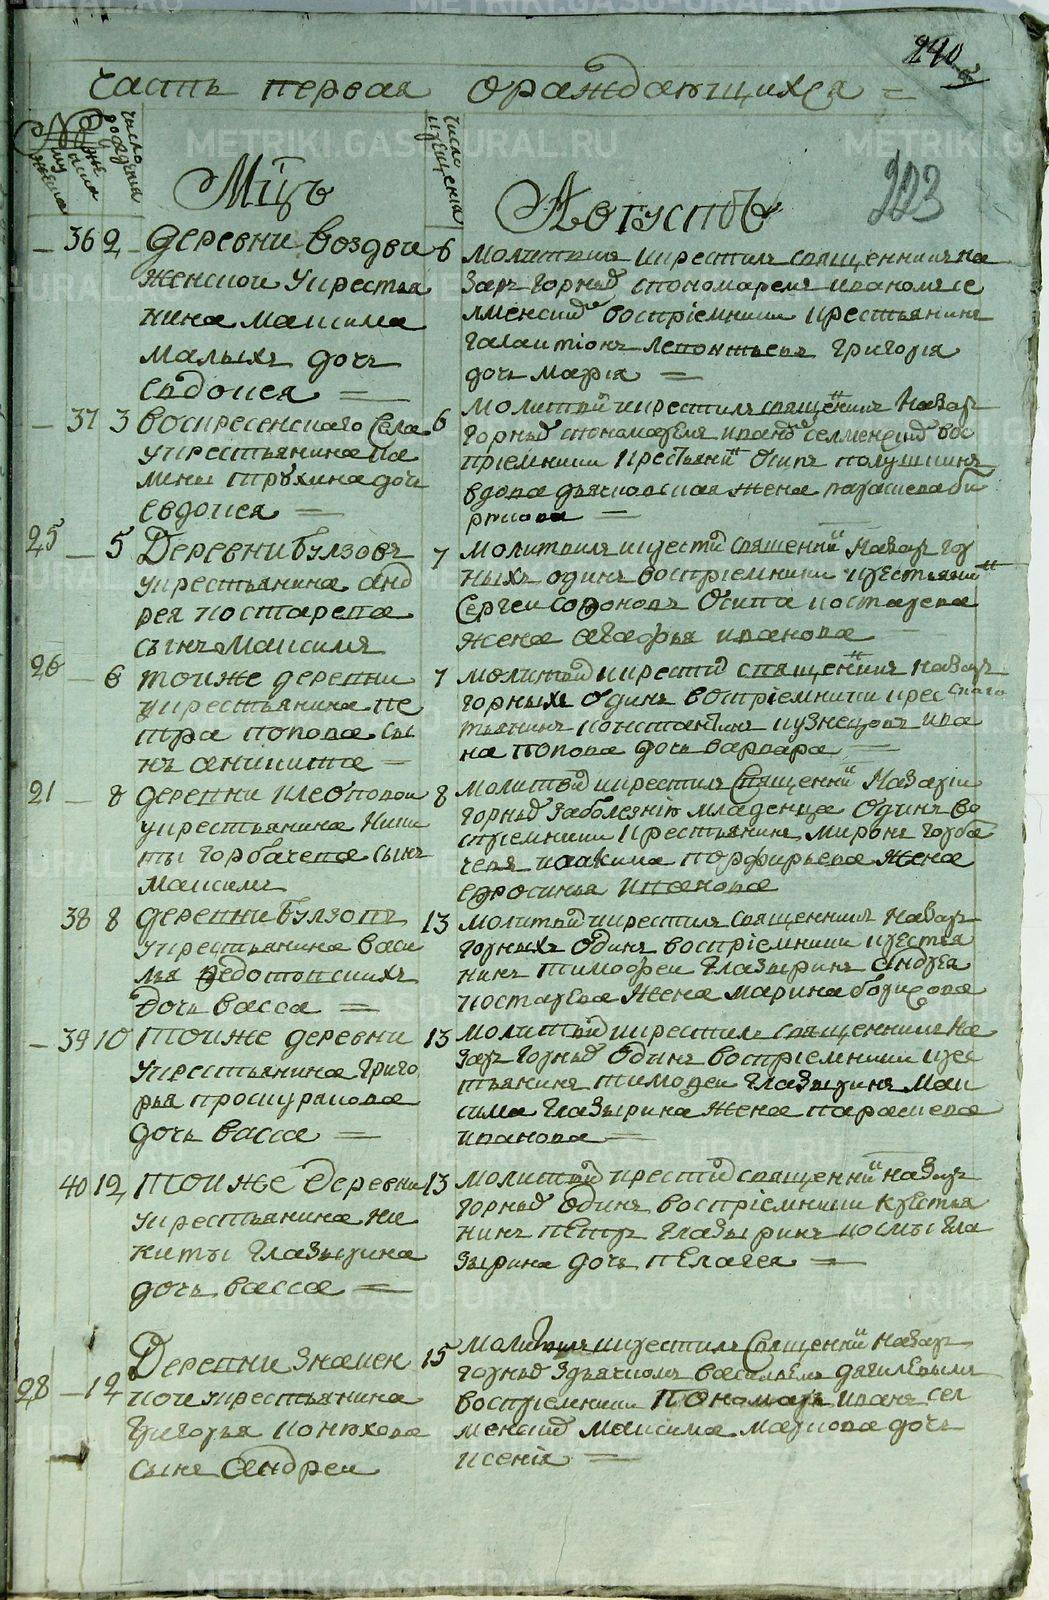 240
часть первая ораждающихся =
число рождения
число крещения
Мцъ
Августъ
223
— 36 2 деревни Воздви
женской укрестья
нина Максима
Малыхъ дочь
Евдокея =
6 Молитвилъ икрестилъ священникъ На
заръ Горныхъ спономаремъ иваномъ се
лменскимъ восприемники крестьянинъ
Галактионъ Леонтьевъ Григорья
дочь Мария =
— 37 3 Воскресенскаго Села
укрестьянина
дочь
Евдокея =
6 Молитви икрестилъ священникъ Назаръ
Горныхъ спономаремъ иваномъ селменскимъ вос
приемники крестьянинъ Осипъ Полушкинъ
вдова дьяковская жена
=
25 — 5 Деревни Бузовъ
укрестьянина Анд
рея Костарева
сынъ Максимъ
7 Молитвилъ икрести священни Назаръ Гор
ныхъ одинъ восприемники крестьяни
Сергеи Софоновъ Осипа Костарева
жена Агафья иванова
26 — 6 тоиже деревни
укрестьянина Пе
тра Попова сы
нъ Аникита =
7 молитви икрести священникъ Назаръ
Горныхъ одинъ восприемники крес
тьянинъ Константинъ Кузнецовъ ива
на Попова дочь Варвара =
21 — 8 деревни Клеопинои
укрестьянина Ники
ты Горбачева сынъ
Максимъ
8 Молитви икрестилъ Священни Назарии
Горныхъ заболезнию младенца Одинъ во
сприемники крестьянинъ Миронъ Горба
чевъ иоакима Порфирьева жена
Ефросинья иванова
38 8 деревни Бузовъ
укрестьянина Васи
лья Федотовскихъ
дочь Васса =
13 Молитви икрестилъ священникъ Назаръ
Горныхъ Одинъ восприемники крестья
нинъ Тимофеи Глазыринъ Андрея
Костарева жена Марина Борисова
— 39 10 Тоиже деревни
укрестьянина Григо
рья Проскурякова
дочь Васса =
13 Молитви икрестилъ священникъ На
заръ Горныхъ Одинъ восприемники крес
тьянинъ Тимофеи Глазыринъ Мак
сима Глазырина жена Парасковья
иванова =
40 12 Тоиже деревни
укрестьянина Ни
киты Глазырина
дочь Васса =
13 Молитви крести священни Назаръ
Горныхъ Одинъ восприемники крестья
нинъ Петръ Глазыринъ Космы Гла
зырина дочь Пелагея =
28 — 12 Деревни Знамен
ской укрестьянина
Григорья Конюхова
сынъ Андреи
15 Молитвилъ икрестилъ Священни Назаръ
Горныхъ здьячкомъ Васильемъ
восприемники Пономарь иванъ сел
менскихъ Максима Маркова дочь
Ксения =